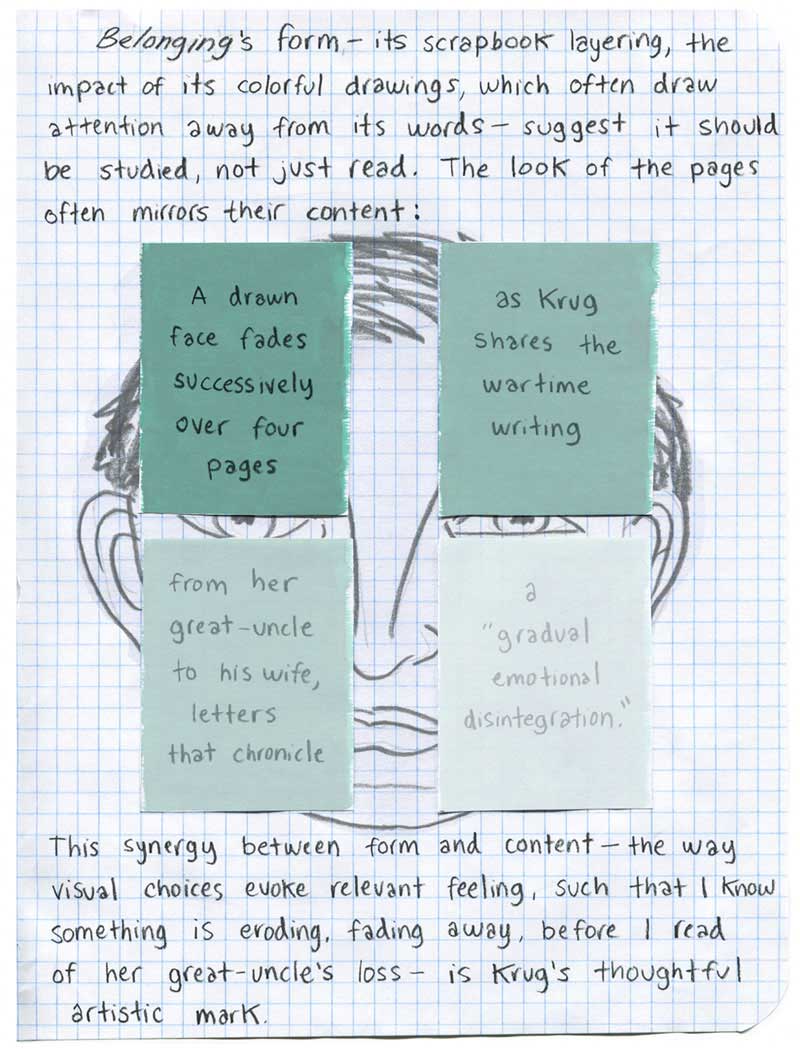 Belonging's form – its scrapbook layering, the
impact of its colorful drawings, which often draw
attention away from its words – suggest it should
be studied, not just read. The look of the pages
often mirrors their content:
A drawn
face fades
successively
over four
pages
as Krug
shares the
wartime
writing
from her
great-uncle
to his wife,
letters
that chronicle
a
"gradual
emotional
disintegration."
This synergy between form and content – the way
visual choices evoke relevant feeling, such that I know
something is eroding, fading away, before I read
of her great-uncle's loss – is Krug's thoughtful
artistic mark.